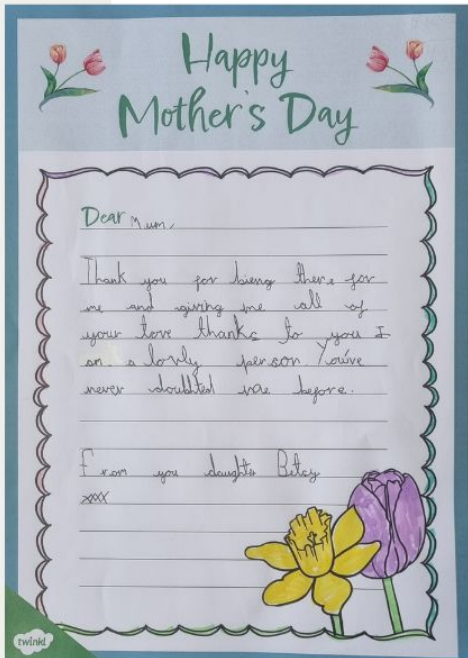 Happy
Mother's Day
Dear Mum,
Thank you for bieng there for
me and giving me all of
your love thanks to you I
am a lovly person You've
never doubted me before.
From you daughter Betsy
xxxx
twinkl